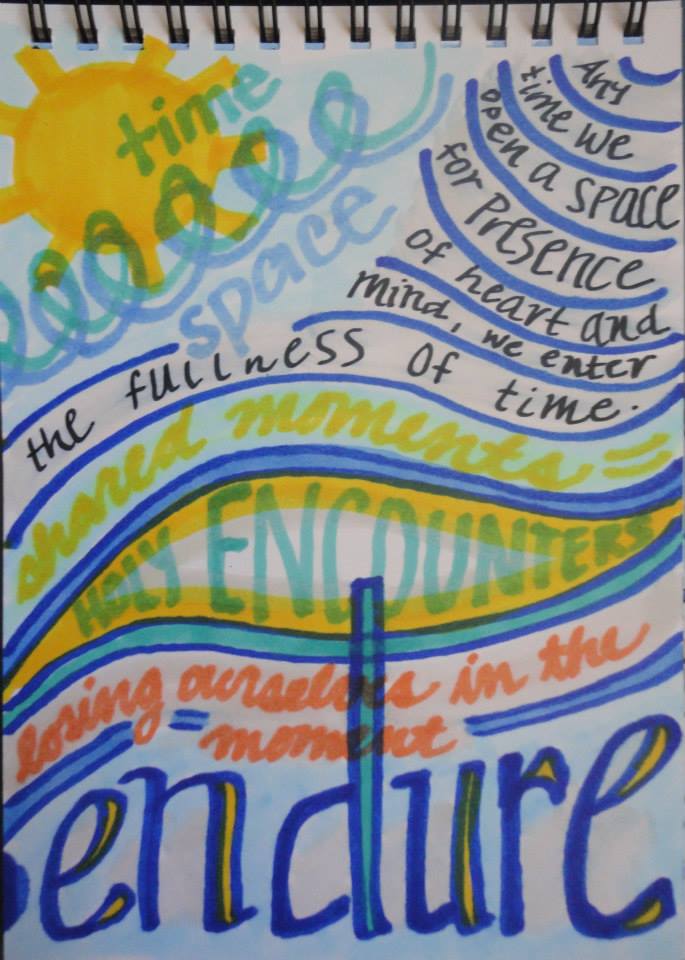 time
space
Any
time we
open a space
for Presence
of heart and
mind, we enter
the fullness of time.
shared moments =
HOLY ENCOUNTERS
losing ourselves in the
= moment
endure